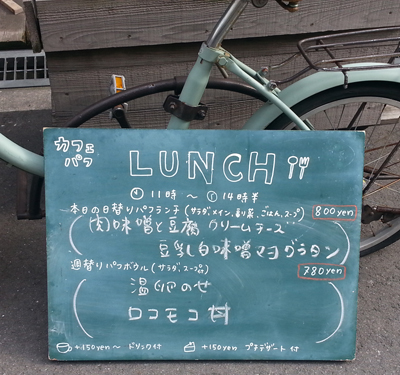 カフェ
パフ
LUNCH
11時〜14時半
本日の日替りパフランチ(サラダ、メイン、副菜、ごはん、スープ) 800yen
味噌と豆腐クリームチーズ
豆乳白味噌マヨグラタン
週替りパフボウル(サラダ、スープ付) 780yen
温卵のせ
ロコモコ丼
+150yen〜 ドリンク付 +150yen プチデザート付